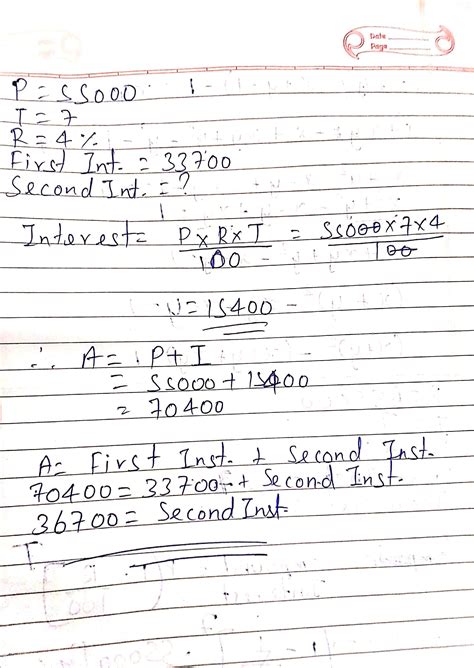 Date
Page
P = 55000
T = 7
R = 4 %
First Int. = 33700
Second Int. = ?
Interest = P x R x T / 100 = 55000 x 7 x 4 / 100
= 15400
∴ A = P + I
= 55000 + 15400
= 70400
A = First Inst. + Second Inst.
70400 = 33700 + Second Inst.
36700 = Second Inst.